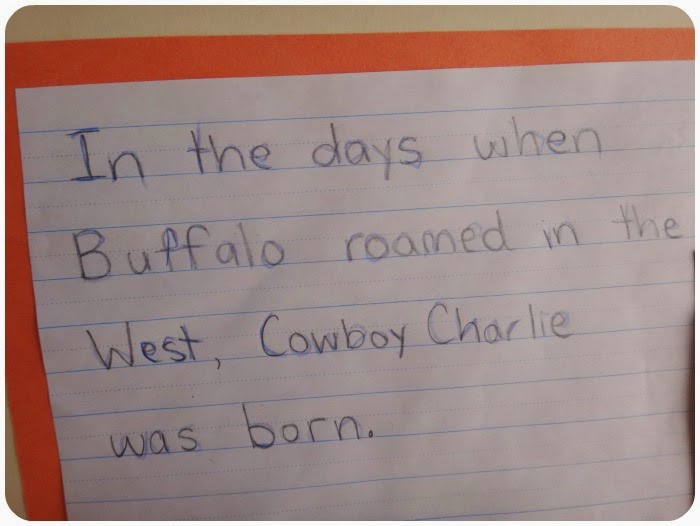 In the days when
Buffalo roamed in the
West, Cowboy Charlie
was born.